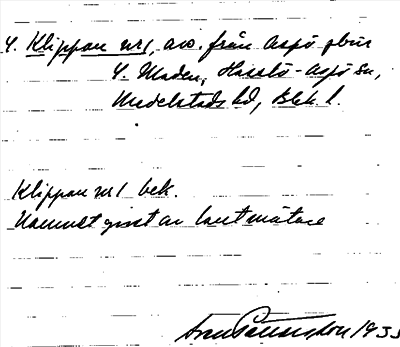 4. Klippan nr 1, avs. från Aspö
4. Maden, Hasslö-Aspö sn,
Medelstads hd, Blek. l.
Klippan nr 1 bek.
Namnet av lantmätare
1933